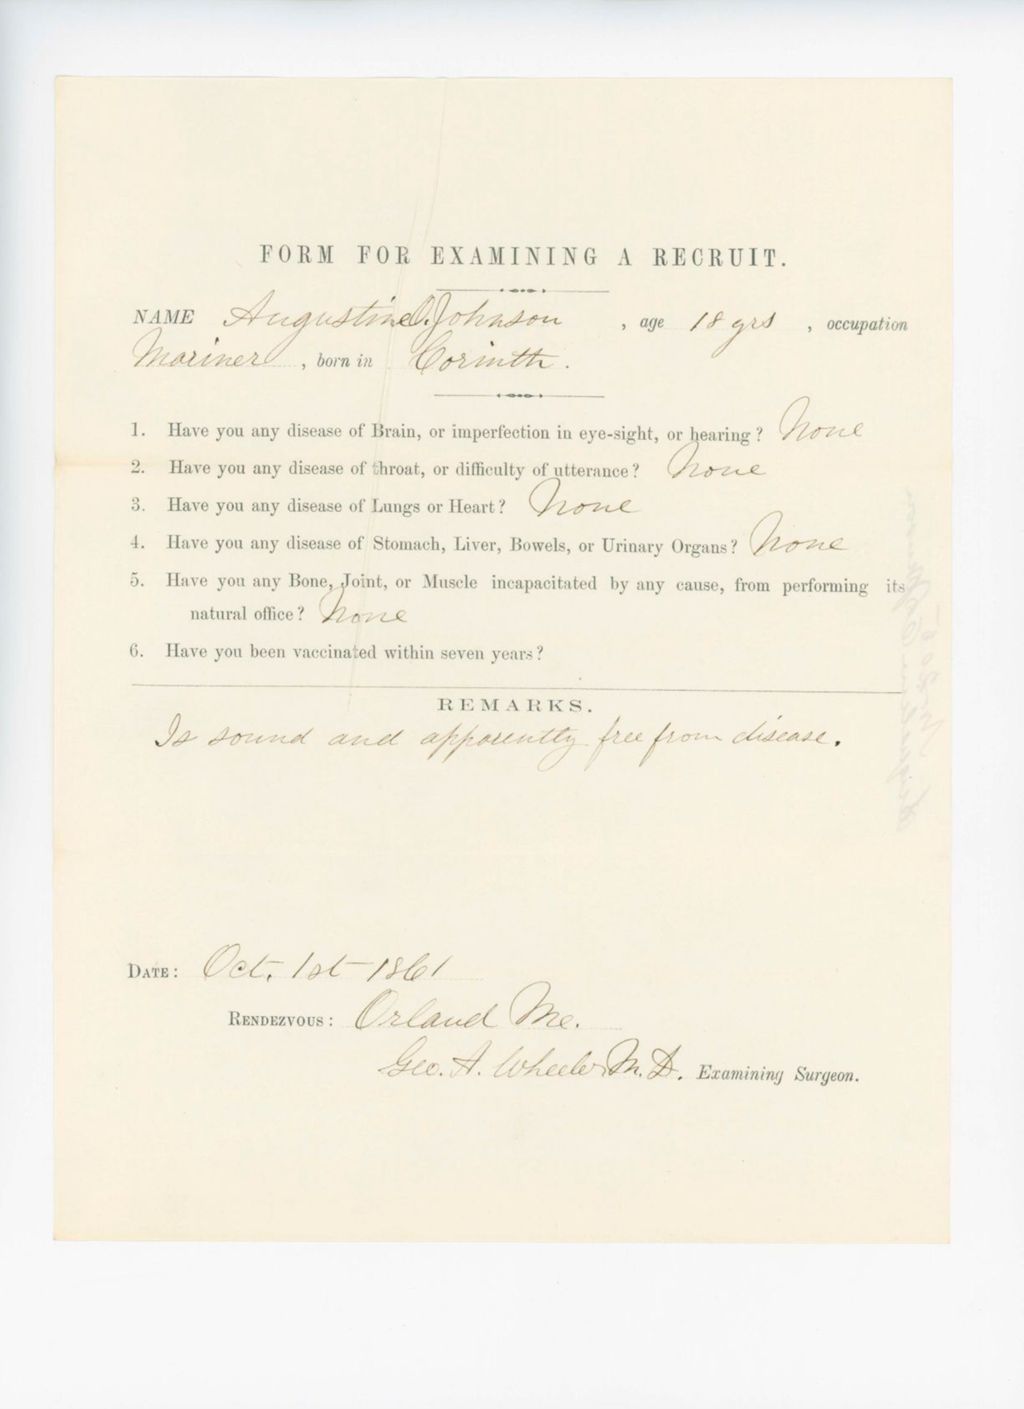 FORM FOR EXAMINING A RECRUIT.
NAME Augustine O. Johnson , age 18 yrs , occupation
Mariner , born in Corinth .
1. Have you any disease of Brain, or imperfection in eye-sight, or hearing? None
2. Have you any disease of throat, or difficulty of utterance? None
3. Have you any disease of Lungs or Heart? None
4. Have you any disease of Stomach, Liver, Bowels, or Urinary Organs? None
5. Have you any Bone, Joint, or Muscle incapacitated by any cause, from performing its
natural office? None
6. Have you been vaccinated within seven years?
REMARKS.
Is sound and apparently free from disease.
DATE: Oct. 1st 1861
RENDEZVOUS: Orland Me.
Geo. A. Wheeler M. D. Examining Surgeon.